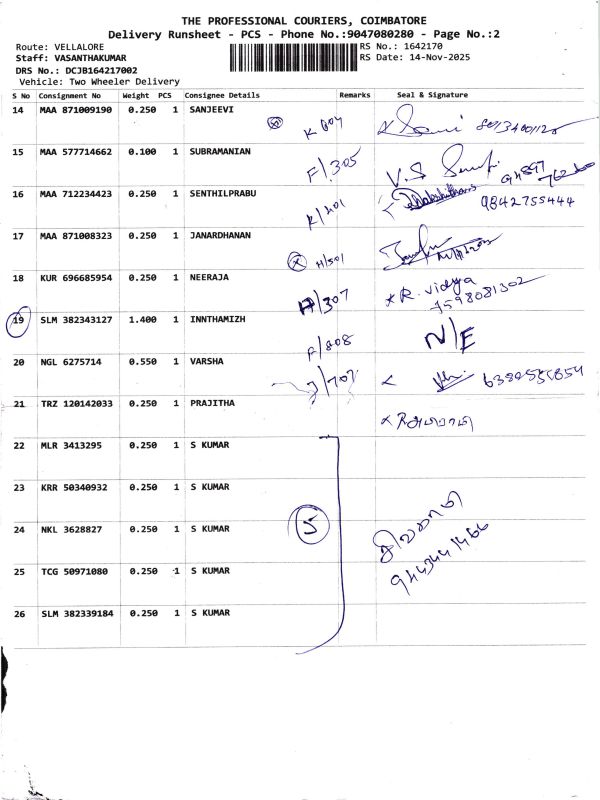 THE PROFESSIONAL COURIERS, COIMBATORE
Delivery Runsheet - PCS - Phone No.:9047080280 - Page No.:2
Route: VELLALORE RS No.: 1642170
Staff: VASANTHAKUMAR RS Date: 14-Nov-2025
DRS No.: DCJB164217002
Vehicle: Two Wheeler Delivery
S No Consignment No Weight PCS Consignee Details Remarks Seal & Signature
14 MAA 871009190 0.250 1 SANJEEVI K 604
15 MAA 577714662 0.100 1 SUBRAMANIAN F/305 V.S
16 MAA 712234423 0.250 1 SENTHILPRABU K/401 9842755444
17 MAA 871008323 0.250 1 JANARDHANAN H/501
18 KUR 696685954 0.250 1 NEERAJA H/307 R. vidya 7598081302
19 SLM 382343127 1.400 1 INNTHAMIZH F/808 N/E
20 NGL 6275714 0.550 1 VARSHA J/707
21 TRZ 120142033 0.250 1 PRAJITHA
22 MLR 3413295 0.250 1 S KUMAR
23 KRR 50340932 0.250 1 S KUMAR
24 NKL 3628827 0.250 1 S KUMAR 5
25 TCG 50971080 0.250 1 S KUMAR 9443441466
26 SLM 382339184 0.250 1 S KUMAR